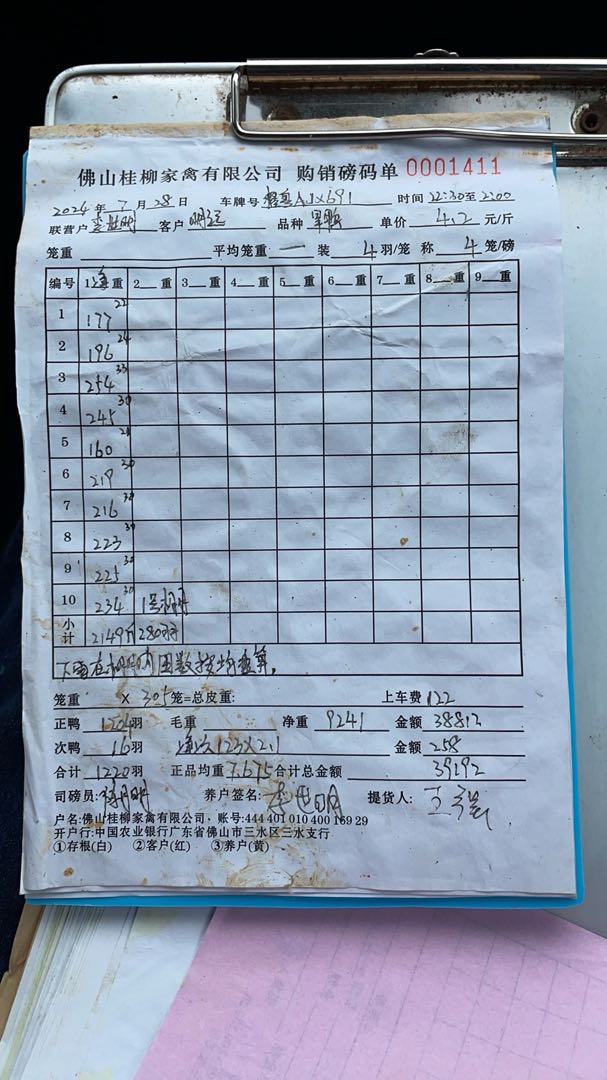 佛山桂柳家禽有限公司 购销磅码单 0001411
2024年7月28日 车牌号 AJX691 时间 12:30至2:00
联营户 李世明 客户 明记 品种 单价 4.2 元/斤
笼重 平均笼重 一 装 4 羽/笼 称 4 笼/磅
编号 1净重 2 重 3 重 4 重 5 重 6 重 7 重 8 重 9 重
1 177 22
2 196 24
3 254 33
4 245 30
5 160
6 217 30
7 216 30
8 223 30
9 225 30
10 234 30
小计 2149斤 280羽
笼重 X 305笼=总皮重: 上车费 122
正鸭 1204羽 毛重 净重 9241 金额 38812
次鸭 16羽 净次123X2.1 金额 258
合计 1220羽 正品均重 7.675 合计总金额 39192
司磅员: 养户签名: 李世明 提货人:
户名:佛山桂柳家禽有限公司, 账号:444 401 010 400 169 29
开户行:中国农业银行广东省佛山市三水区三水支行
①存根(白) ②客户(红) ③养户(黄)